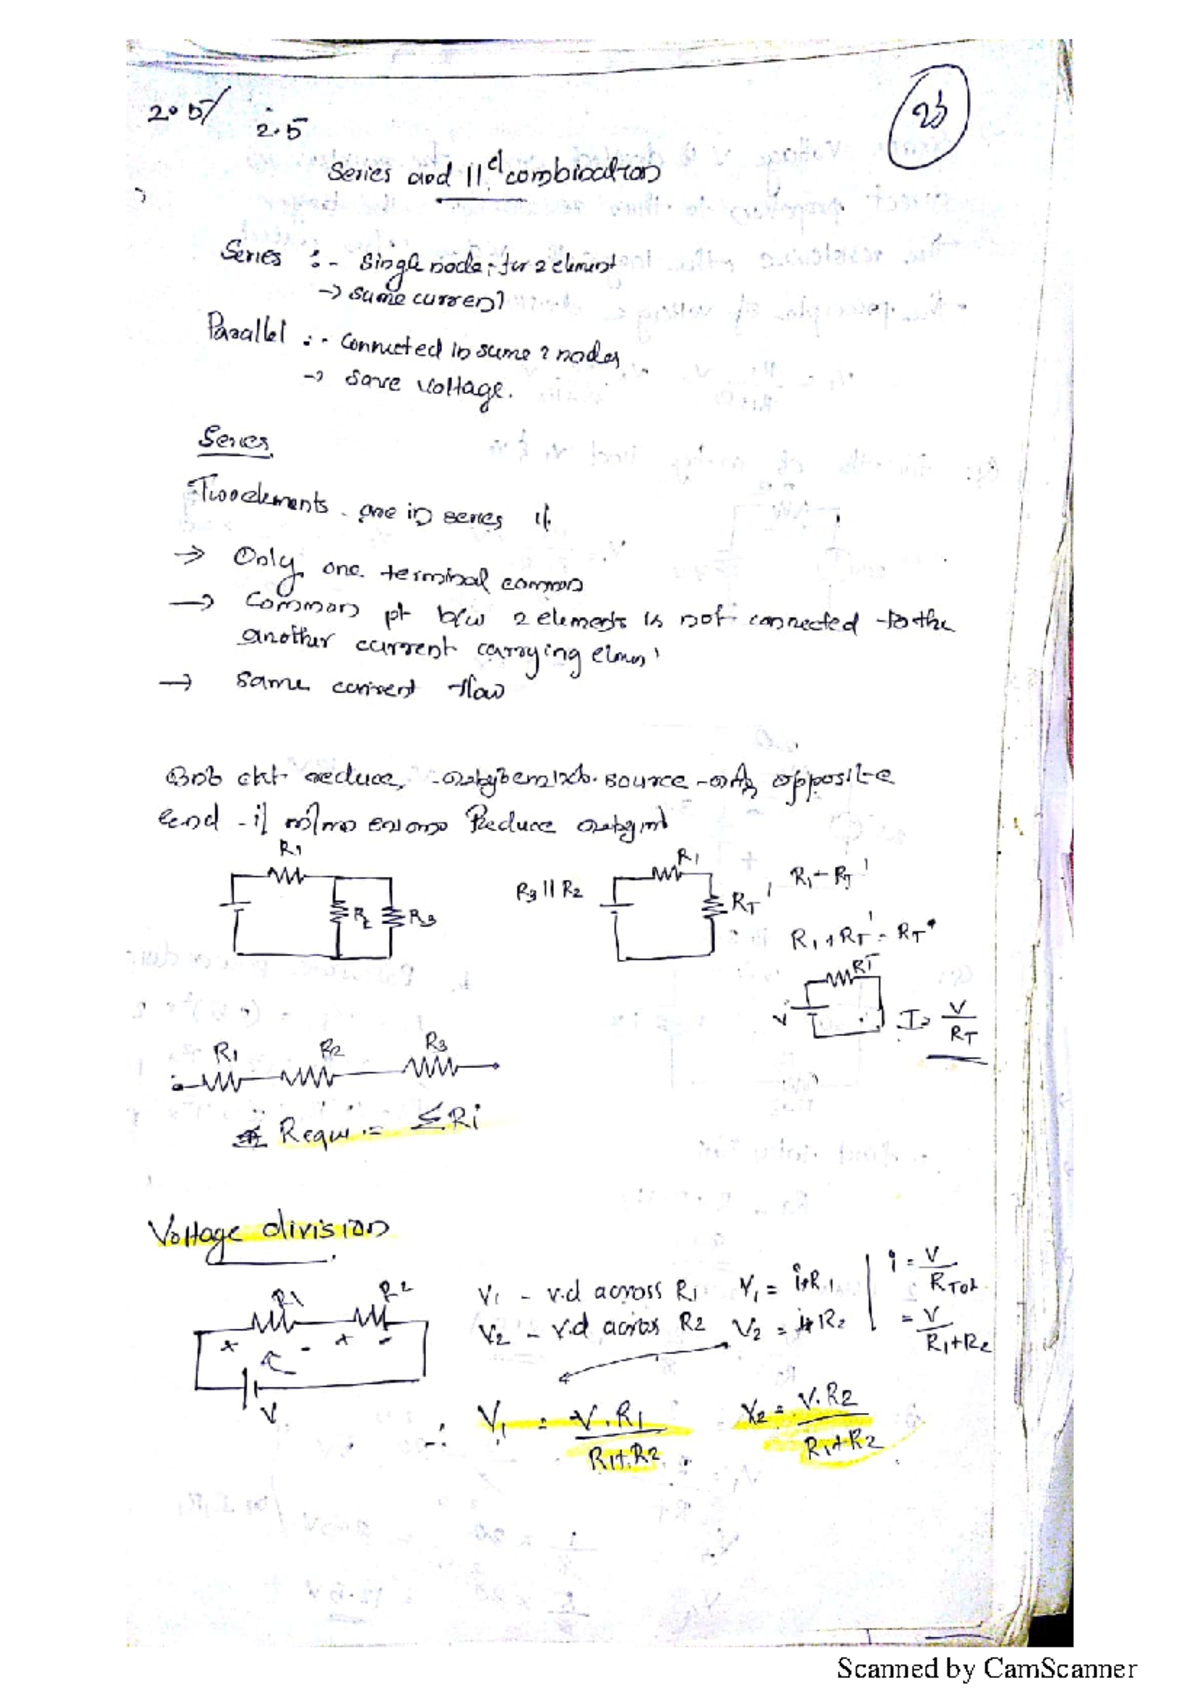 2.5/ 2.5
23
Series and ||el combination
Series :- Single node for 2 element
→ same current
Parallel :- Connected in same 2 nodes
→ Save voltage.
Series
Two elements are in series if
→ Only one terminal common
→ Common pt b/w 2 elements is not connected to the
another current carrying elmn'
→ same current flow
ckt reduce, source opposite
end Reduce
R1
R2 R3
R3 || R2
R1
RT'
R1 - RT'
R1 + RT' = RT"
RT
V
I = V/RT
R1 R2 R3
Requi = ΣRi
Voltage division
R1 R2
+ - + -
V
V1 - v.d across R1 V1 = i*R1
V2 - v.d across R2 V2 = i*R2
i = V/RTot
= V/R1+R2
∴ V1 = V.R1/R1+R2 V2 = V.R2/R1+R2
Scanned by CamScanner